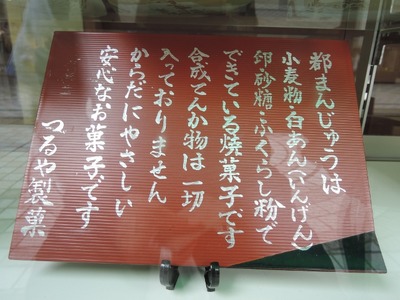 都まんじゅうは
小麦粉・白あん(いんげん)
卵・砂糖・ふくらし粉で
できている焼菓子です
合成てんか物は一切
入っておりません
からだにやさしい
安心なお菓子です
つるや製菓